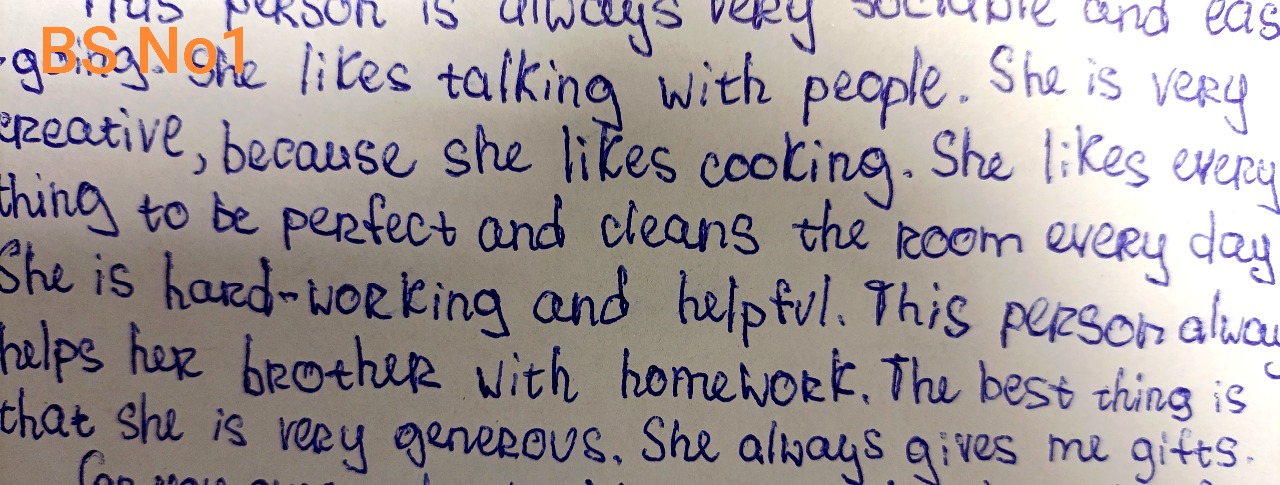 This person is always very sociable and eas
BS.No1
-going. She likes talking with people. She is very
creative, because she likes cooking. She likes every
thing to be perfect and cleans the room every day
She is hard-working and helpful. This person alway
helps her brother with homework. The best thing is
that she is very generous. She always gives me gifts.